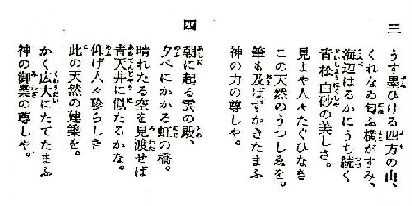 三
うす墨ひける四方の山、
くれなゐ匂ふ横がすみ、
海辺はるかにうち続く
青松白砂の美しさ。
見よや人々たぐひなき
この天然のうつしゑを。
筆も及ばずかきたまふ
神の力の尊しや。
四
朝に起る雲の殿、
夕べにかかる虹の橋。
晴れたる空を見渡せば
青天井に似たるかな。
仰げ人々珍らしき
此の天然の建築を。
かく広大にたてたまふ
神の御業の尊しや。